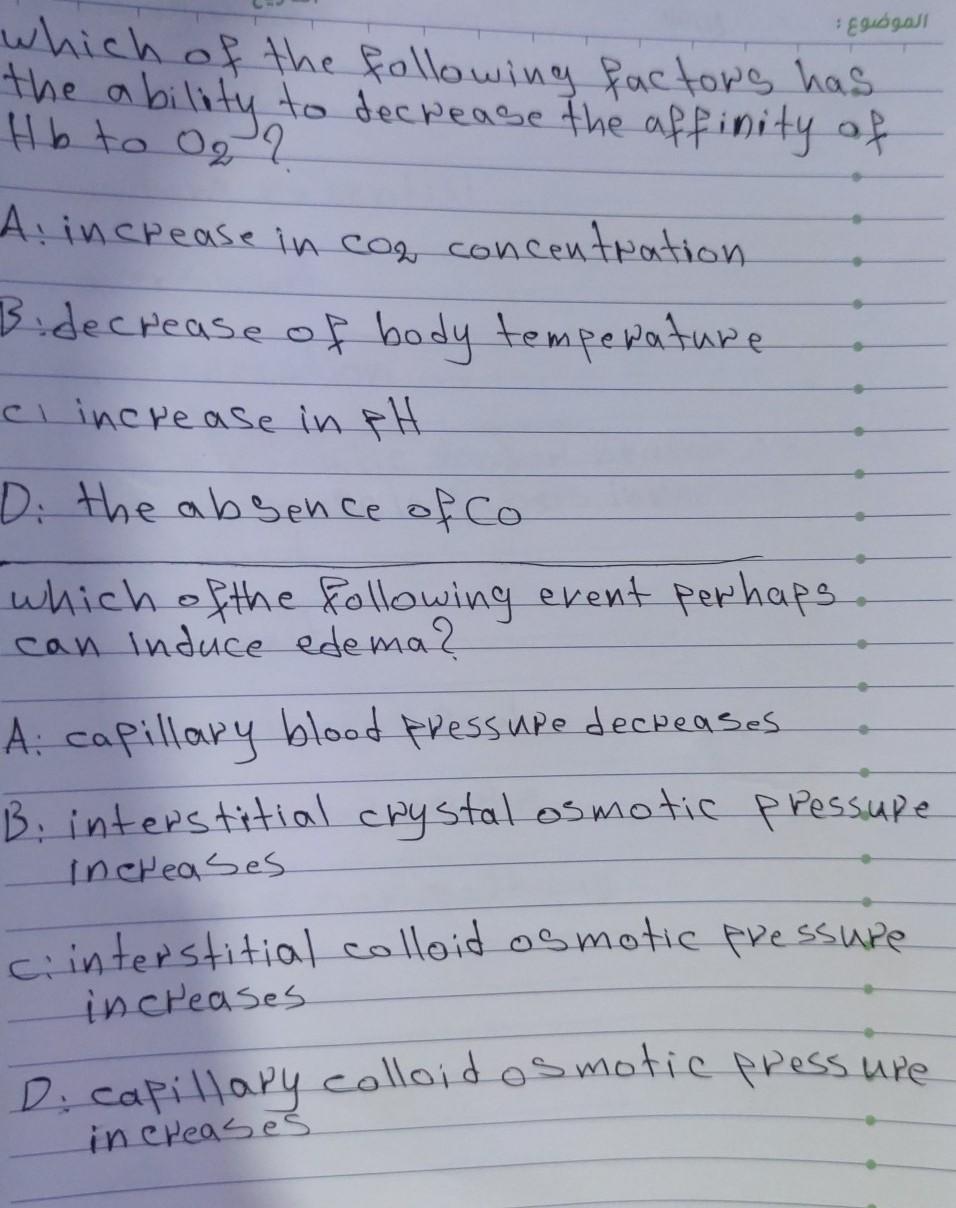 الموضوع:
which of the following factors has
the ability to decrease the affinity of
Hb to O2?
A: increase in CO2 concentration
B: decrease of body temperature
C: increase in PH
D: the absence of Co
which of the following event perhaps
can induce edema?
A: capillary blood pressure decreases
B: interstitial crystal osmotic pressure
increases
C: interstitial colloid osmotic pressure
increases
D: capillary colloid osmotic pressure
increases